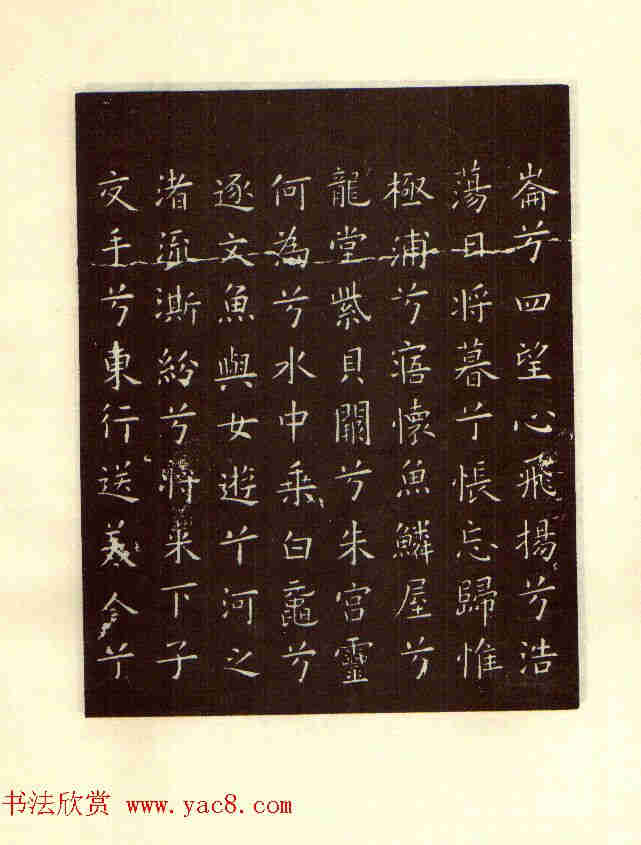 崙兮四望心飛揚兮浩
蕩日将暮兮悵忘歸惟
極浦兮寤懷魚鱗屋兮
龍堂紫貝闕兮朱宮靈
何為兮水中乗白黿兮
逐文魚與女遊兮河之
渚流澌紛兮将来下子
交手兮東行送美人兮
书法欣赏 www.yac8.com